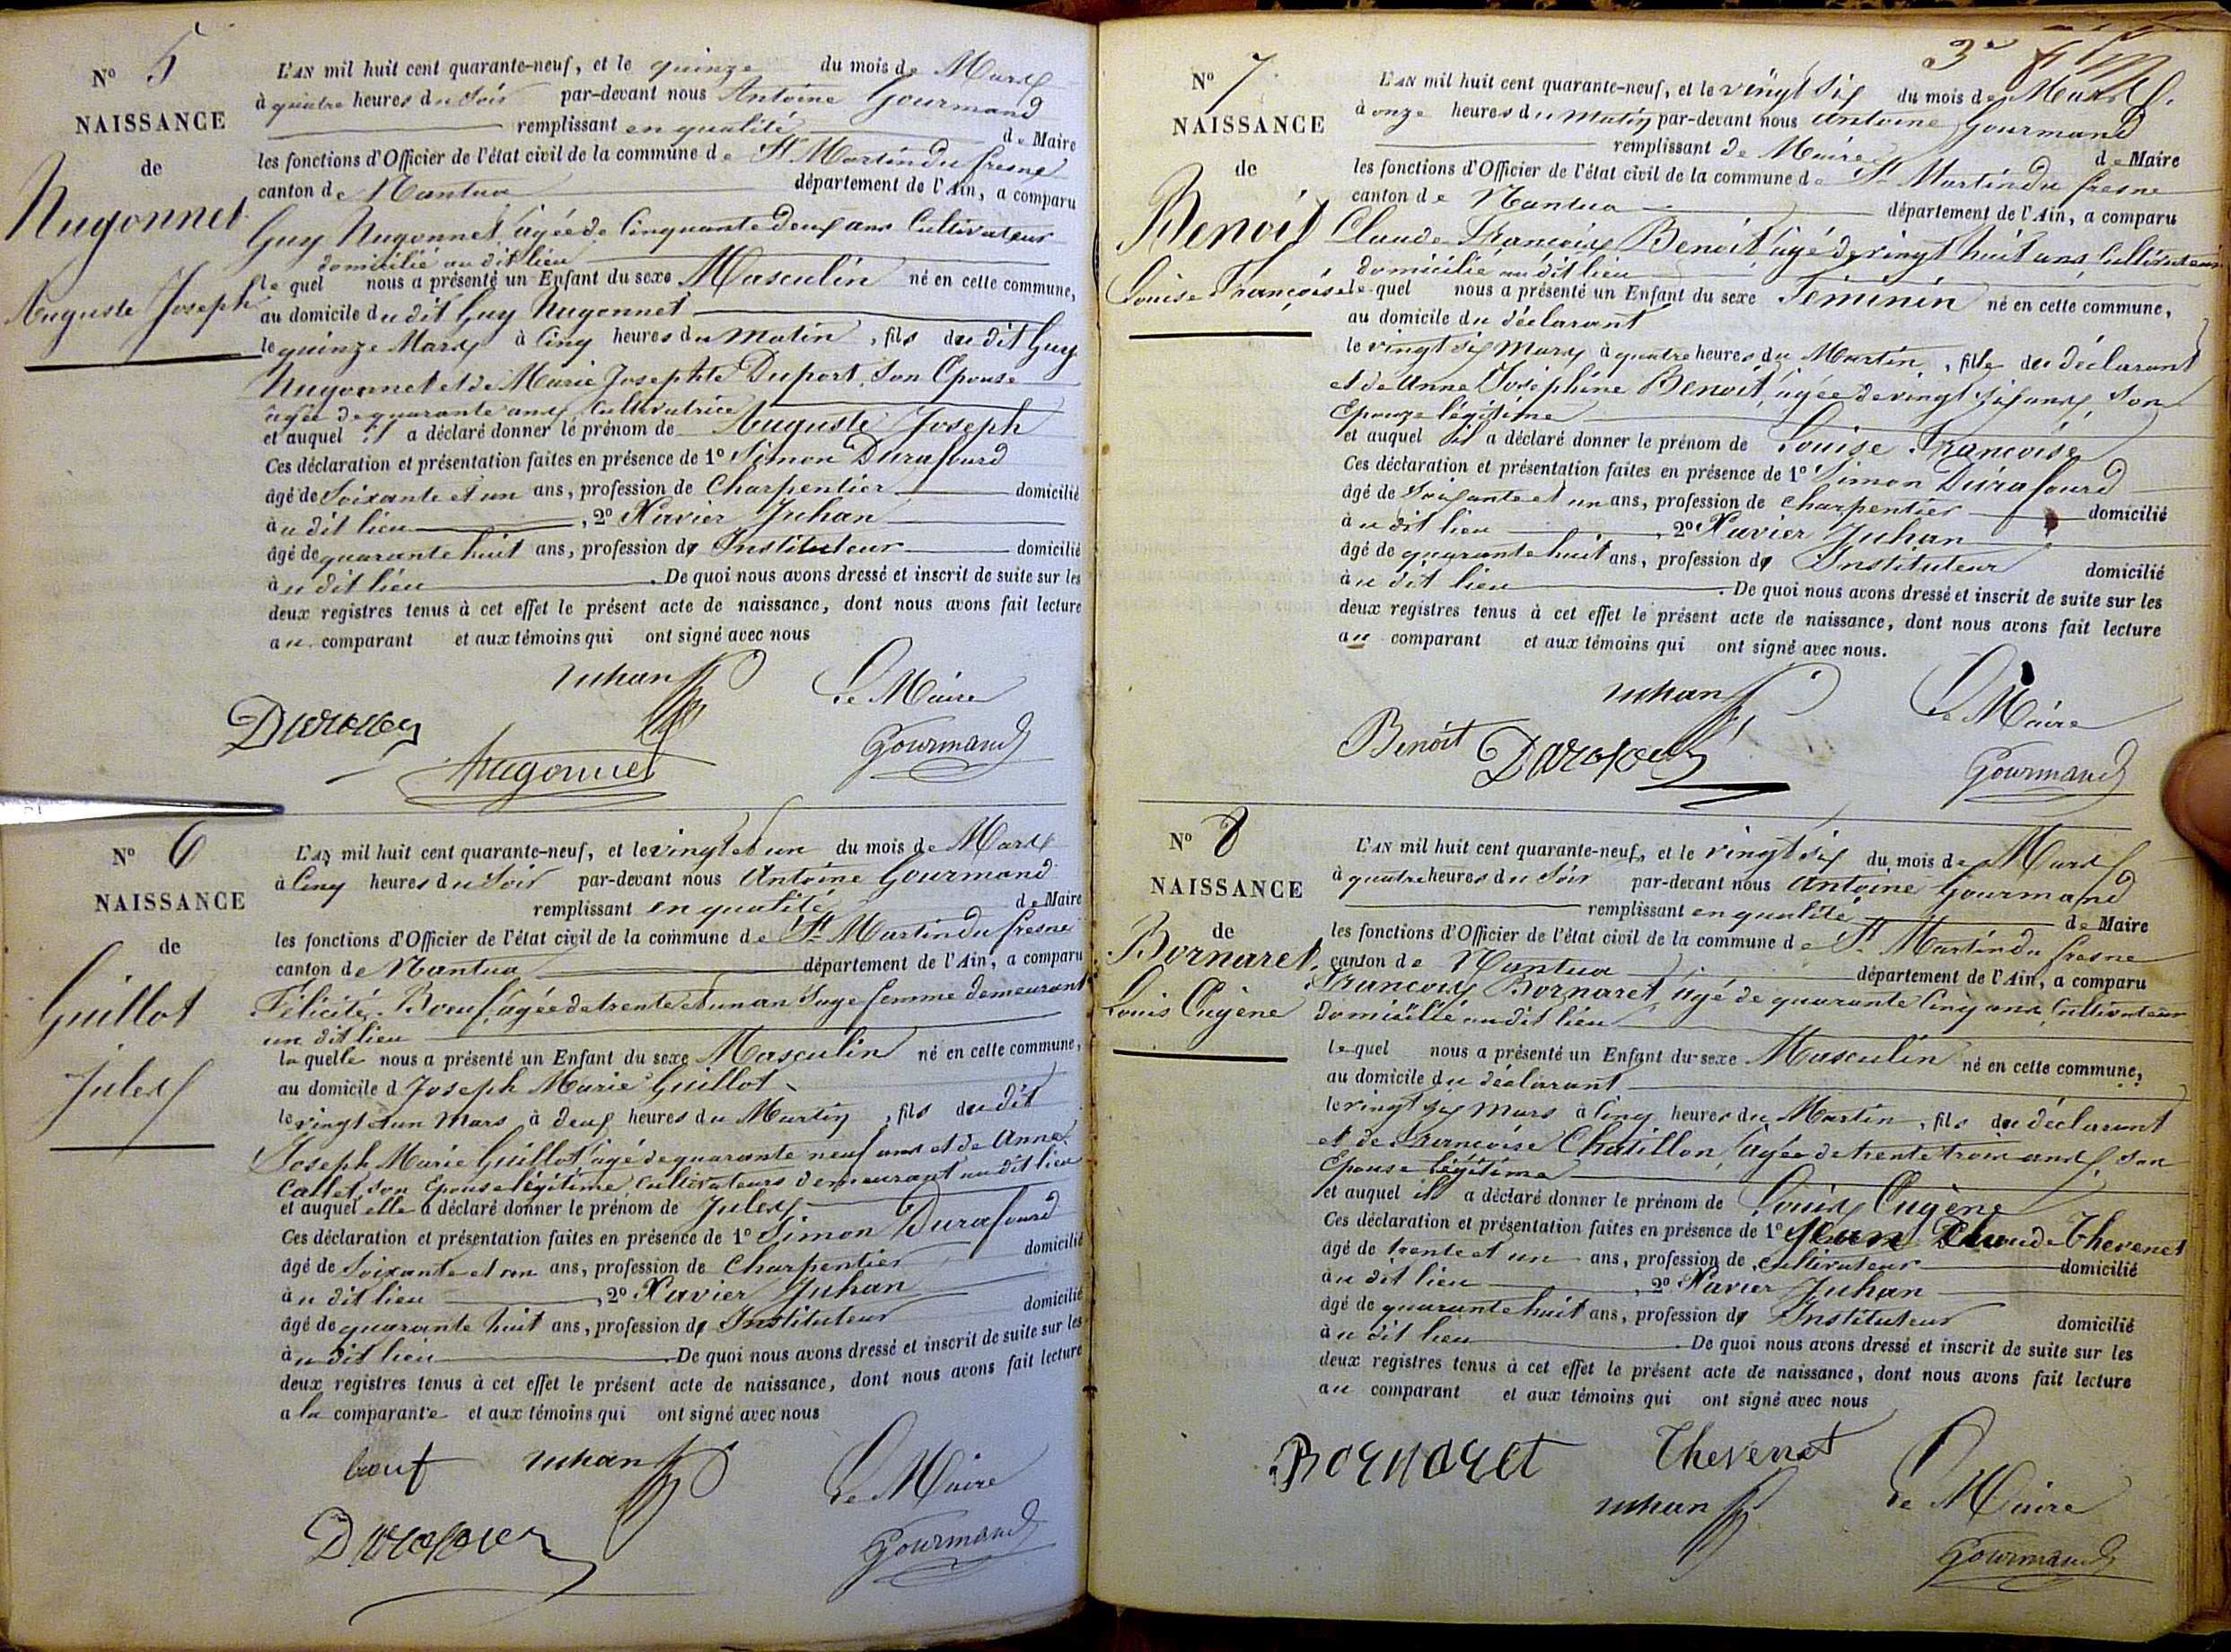 N° 5
NAISSANCE
de
Nugonnet
Auguste Joseph
L'AN mil huit cent quarante-neuf, et le quinze du mois de Mars
à quatre heures du Soir par-devant nous Antoine Gourmand
remplissant en qualité de Maire
les fonctions d'Officier de l'état civil de la commune de St Martin du fresne
canton de Nantua département de l'Ain, a comparu
Guy Nugonnet, âgé de Cinquante deux ans Cultivateur
domicilié au dit lieu
le quel nous a présenté un Enfant du sexe Masculin né en cette commune,
au domicile du dit Guy Nugonnet
le quinze Mars à Cinq heures du Matin, fils du dit Guy
Nugonnet et de Marie Josephte Duport, Son Epouse
âgée de quarante ans, Cultivatrice
et auquel il a déclaré donner le prénom de Auguste Joseph
Ces déclaration et présentation faites en présence de 1° Simon Durafourd
âgé de Soixante et un ans, profession de Charpentier domicilié
au dit lieu, 2° Xavier Juhan
âgé de quarante huit ans, profession d' Instituteur domicilié
au dit lieu. De quoi nous avons dressé et inscrit de suite sur les
deux registres tenus à cet effet le présent acte de naissance, dont nous avons fait lecture
au comparant et aux témoins qui ont signé avec nous
Juhan Le Maire
Nugonnet Gourmand
N° 6
NAISSANCE
de
Guillot
Jules
L'AN mil huit cent quarante-neuf, et le vingt et un du mois de Mars
à Cinq heures du Soir par-devant nous Antoine Gourmand
remplissant en qualité de Maire
les fonctions d'Officier de l'état civil de la commune de St Martin du fresne
canton de Nantua département de l'Ain, a comparu
Félicité Boeuf, âgée de trente et un an Sage femme demeurant
au dit lieu
la quelle nous a présenté un Enfant du sexe Masculin né en cette commune,
au domicile d Joseph Marie Guillot
le vingt et un Mars à deux heures du Martin, fils du dit
Joseph Marie Guillot âgé de quarante neuf ans et de Anne
Callet, son Epouse légitime Cultivateurs demeurant au dit lieu
et auquel elle a déclaré donner le prénom de Jules
Ces déclaration et présentation faites en présence de 1° Simon Durafourd
âgé de Soixante et un ans, profession de Charpentier domicilié
au dit lieu, 2° Xavier Juhan
âgé de quarante huit ans, profession d' Instituteur domicilié
au dit lieu. De quoi nous avons dressé et inscrit de suite sur les
deux registres tenus à cet effet le présent acte de naissance, dont nous avons fait lecture
a la comparante et aux témoins qui ont signé avec nous
boeuf Juhan Le Maire
Gourmand
3e
N° 7
NAISSANCE
de
Benoit
Louise Françoise
L'AN mil huit cent quarante-neuf, et le vingt Six du mois de Mars
à onze heures du matin par-devant nous Antoine Gourmand
remplissant de Maire de Maire
les fonctions d'Officier de l'état civil de la commune de St Martin du fresne
canton de Nantua département de l'Ain, a comparu
Claude François Benoit, âgé de vingt huit ans, Cultivateur
domicilié au dit lieu
le quel nous a présenté un Enfant du sexe Féminin né en cette commune,
au domicile du déclarant
le vingt six Mars à quatre heures du Martin, fille du déclarant
et de Anne Joséphine Benoit, âgée de vingt six ans, Son
Epouze légitime
et auquel il a déclaré donner le prénom de Louise Françoise
Ces déclaration et présentation faites en présence de 1° Simon Durafourd
âgé de Soixante et un ans, profession de Charpentier domicilié
au dit lieu, 2° Xavier Juhan
âgé de quarante huit ans, profession d' Instituteur domicilié
au dit lieu. De quoi nous avons dressé et inscrit de suite sur les
deux registres tenus à cet effet le présent acte de naissance, dont nous avons fait lecture
au comparant et aux témoins qui ont signé avec nous.
Juhan Le Maire
Benoit Gourmand
N° 8
NAISSANCE
de
Bornaret
Louis Eugène
L'AN mil huit cent quarante-neuf, et le vingt six du mois de Mars
à quatre heures du Soir par-devant nous Antoine Gourmand
remplissant en qualité de Maire
les fonctions d'Officier de l'état civil de la commune de St Martin du fresne
canton de Nantua département de l'Ain, a comparu
François Bornaret, âgé de quarante Cinq ans, Cultivateur
domicilié au dit lieu
le quel nous a présenté un Enfant du sexe Masculin né en cette commune,
au domicile du déclarant
le vingt six Mars à Cinq heures du Martin, fils du déclarant
et de Françoise Chatillon, âgée de trente trois ans, son
Epouse légitime
et auquel il a déclaré donner le prénom de Louis Eugène
Ces déclaration et présentation faites en présence de 1° Jean Claude Thevenet
âgé de trente et un ans, profession de cultivateur domicilié
au dit lieu, 2° Xavier Juhan
âgé de quarante huit ans, profession d' Instituteur domicilié
au dit lieu. De quoi nous avons dressé et inscrit de suite sur les
deux registres tenus à cet effet le présent acte de naissance, dont nous avons fait lecture
au comparant et aux témoins qui ont signé avec nous
Bornaret Thevenet
Juhan Le Maire
Gourmand